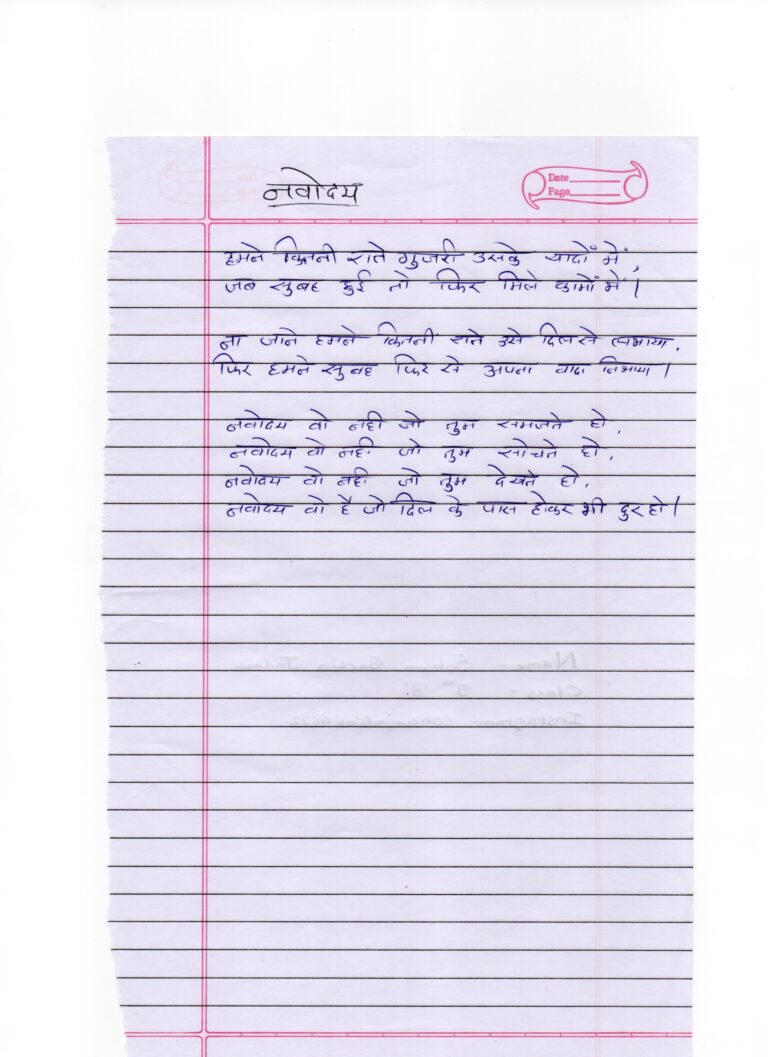 नवोदय
Date
Page
हमने कितनी राते गुजरी उसके यादों में,
जब सुबह हुई तो फिर मिले कामों में।
ना जाने हमने कितनी राते उसे दिलसे
फिर हमने सुबह फिर से अपना वादा निभाया।
नवोदय वो नही जो तुम समजते हो,
नवोदय वो नही जो तुम सोचते हो,
नवोदय वो नही जो तुम देखते हो,
नवोदय वो है जो दिल के पास होकर भी दुर हो।
Name:-
Class:-
Instagram